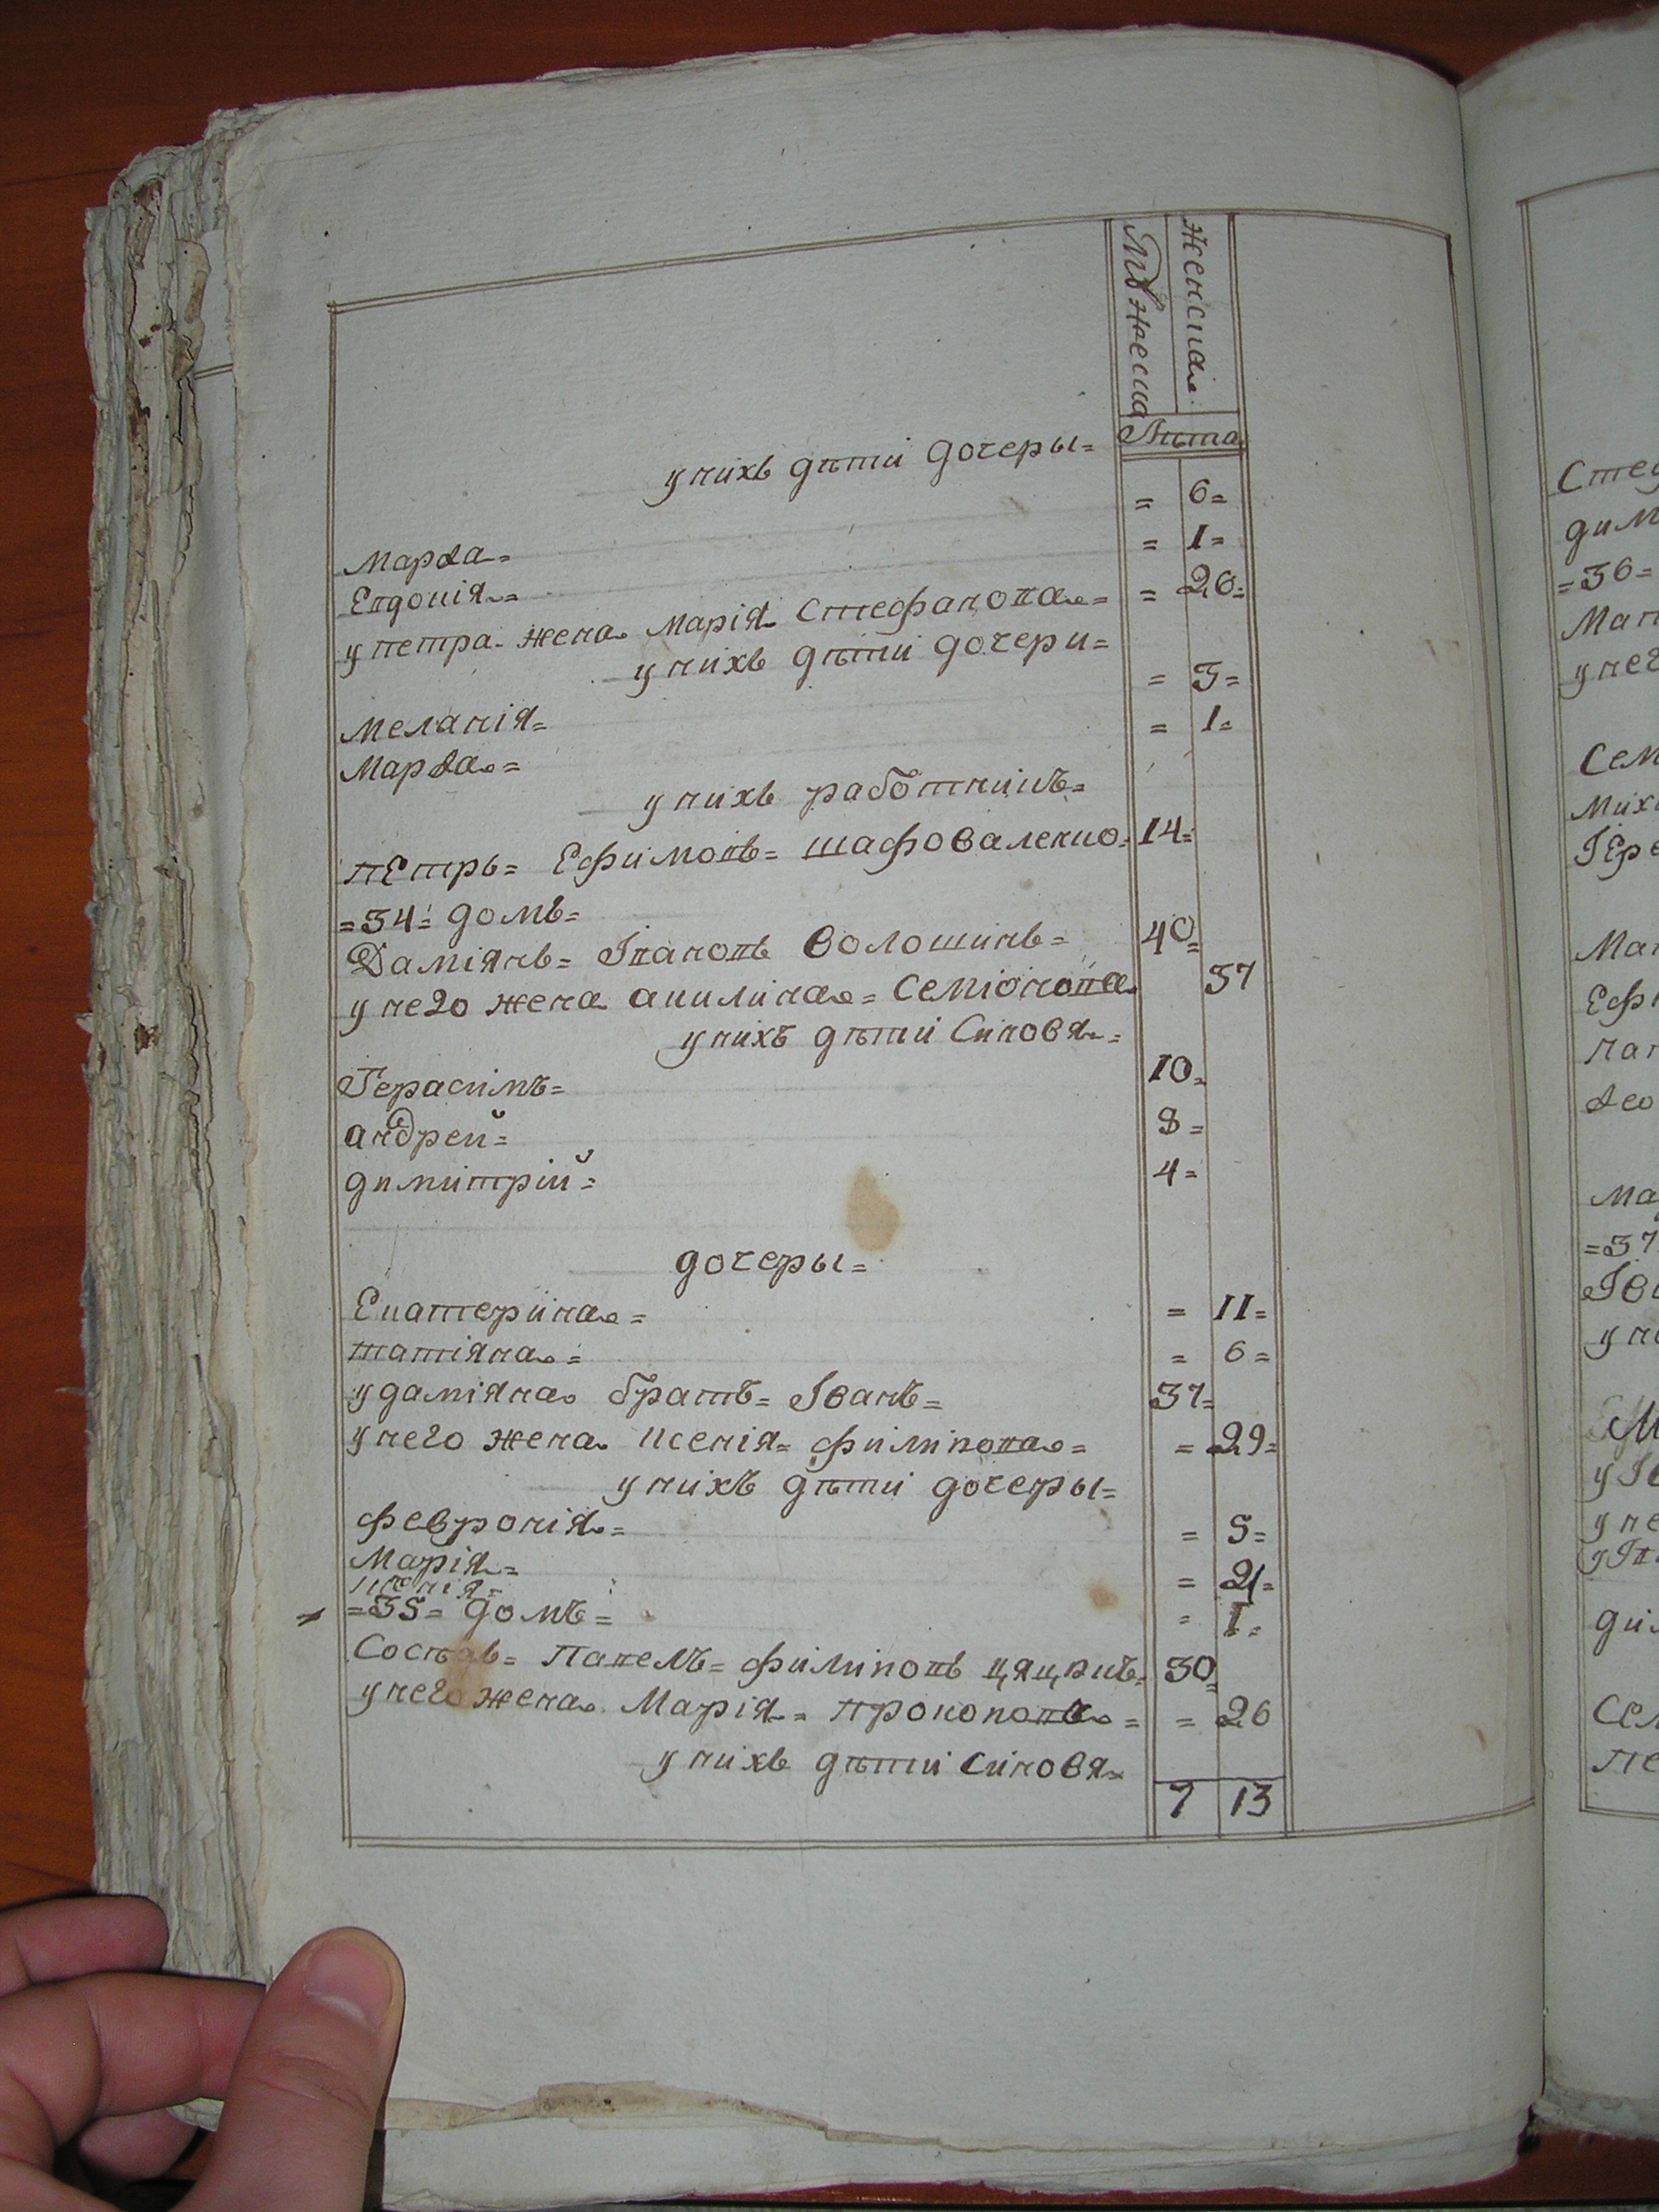 Мужеска
Женска
Лѣта
у нихъ дѣти дочеры=
= 6=
Марѳа=
= 1=
Евдокія=
у петра жена Марія Стефанова= = 26=
у нихъ дѣти дочери=
Меланія= = 3=
Марѳа= = 1=
у нихъ работникъ=
пЕтръ= Ефимовъ= шафоваленко= 14=
=34= домъ=
Даміянъ= Івановъ Волошинъ= 40=
у него жена акилина= Семіонова 37
у нихъ дѣти Синовя=
Герасимъ= 10=
андрей= 8=
димитрій= 4=
дочеры=
Екатерина= = 11=
татіяна= = 6=
у даміяна братъ= Іванъ= 37=
у него жена Ксенія= филіпова= = 29=
у нихъ дѣти дочеры=
феврónія= = 5=
Марія= = 2=
Ксенія=
=35= домъ= = 1=
Сосѣдъ= Павелъ= филіповъ 30=
у него жена Марія= прокопова= = 26
у нихъ дѣти Синовя
7 13
Сте
дим
=36=
Мат
у нег
Сем
Мих
ІЕре
Ма
Еф
ѳео
Ма
=37
Іва
у н
у Ів
у не
Сем
пе